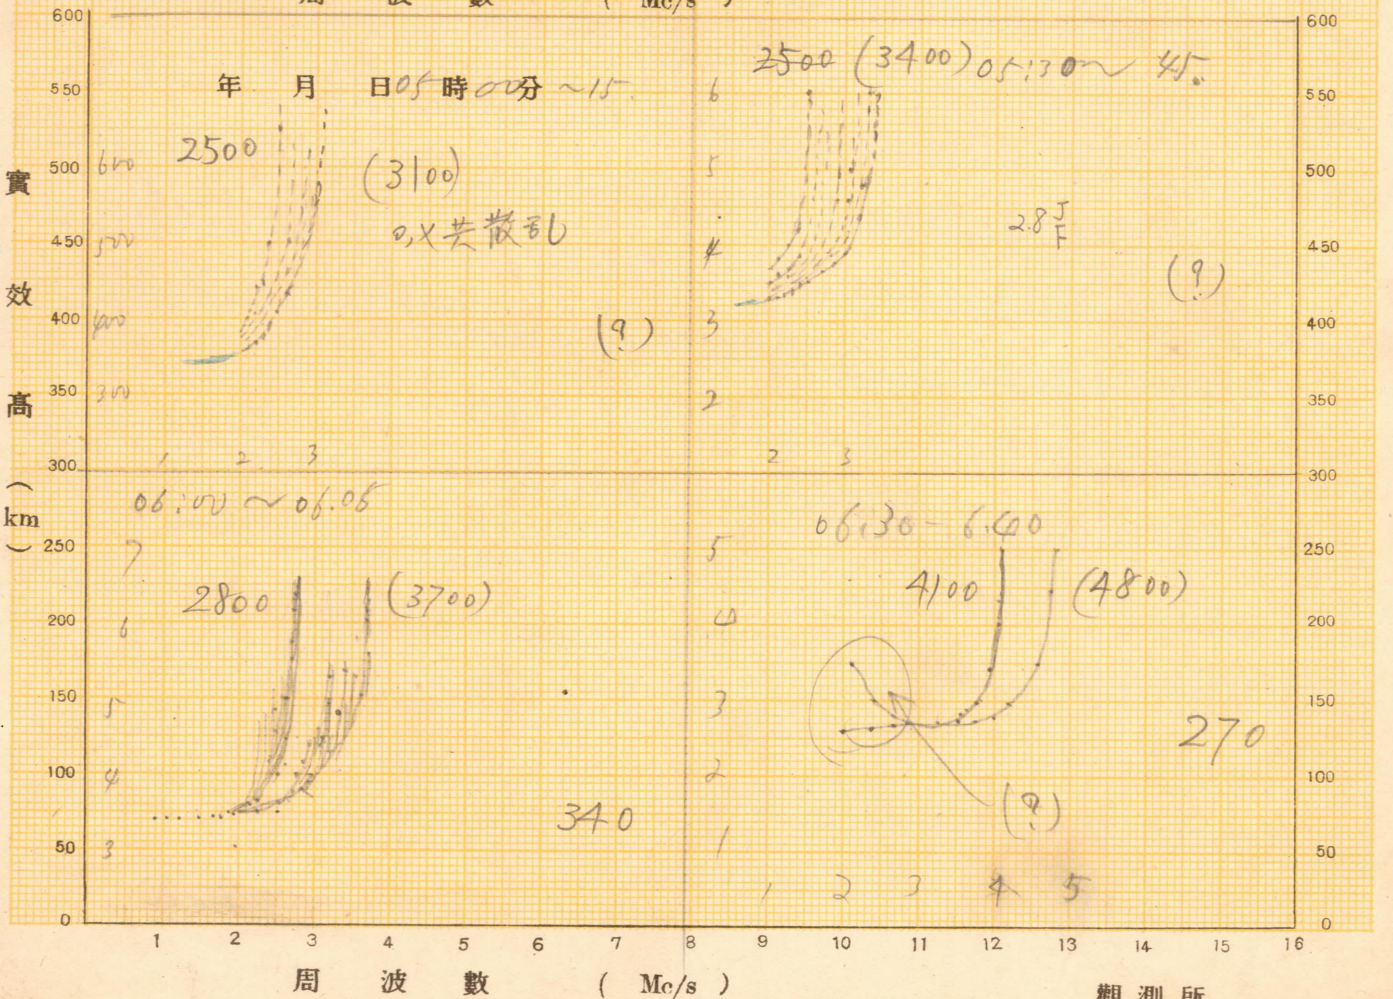 周 波 數 ( Mc/s )
600
550
500
450
400
350
300
250
200
150
100
50
0
實效高(km)
年 月 日05時00分~15
2500
(3100)
o,x共散乱
(?)
600
500
400
300
1 2 3
2500 (3400) 05:30~45.
6
5
4
3
2
2.8 J
F
(?)
2 3
06:00 ~ 06.05
7
6
5
4
3
2800
(3700)
340
06:30 - 6.40
5
4
3
2
1
4100
(4800)
270
(?)
1 2 3 4 5
600
550
500
450
400
350
300
250
200
150
100
50
0
1 2 3 4 5 6 7 8 9 10 11 12 13 14 15 16
周 波 數 ( Mc/s )
觀測所